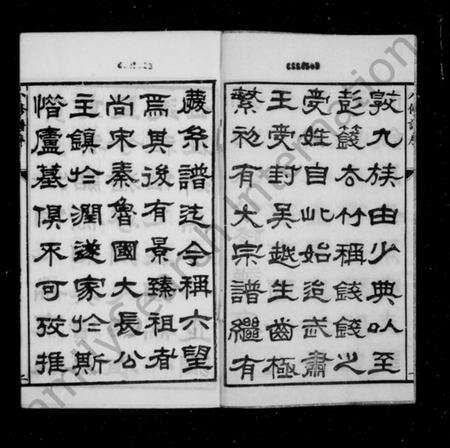 敦九族由少典以至
彭籛去竹稱錢錢之
受姓自此始迨武肅
王受封吳越生齒極
繁初有大宗譜繼有
慶系譜迄今稱六望
焉其後有景臻祖者
尚宋秦魯國大長公
主鎮於潤遂家於斯
惜廬墓俱不可攷推
FamilySearch International